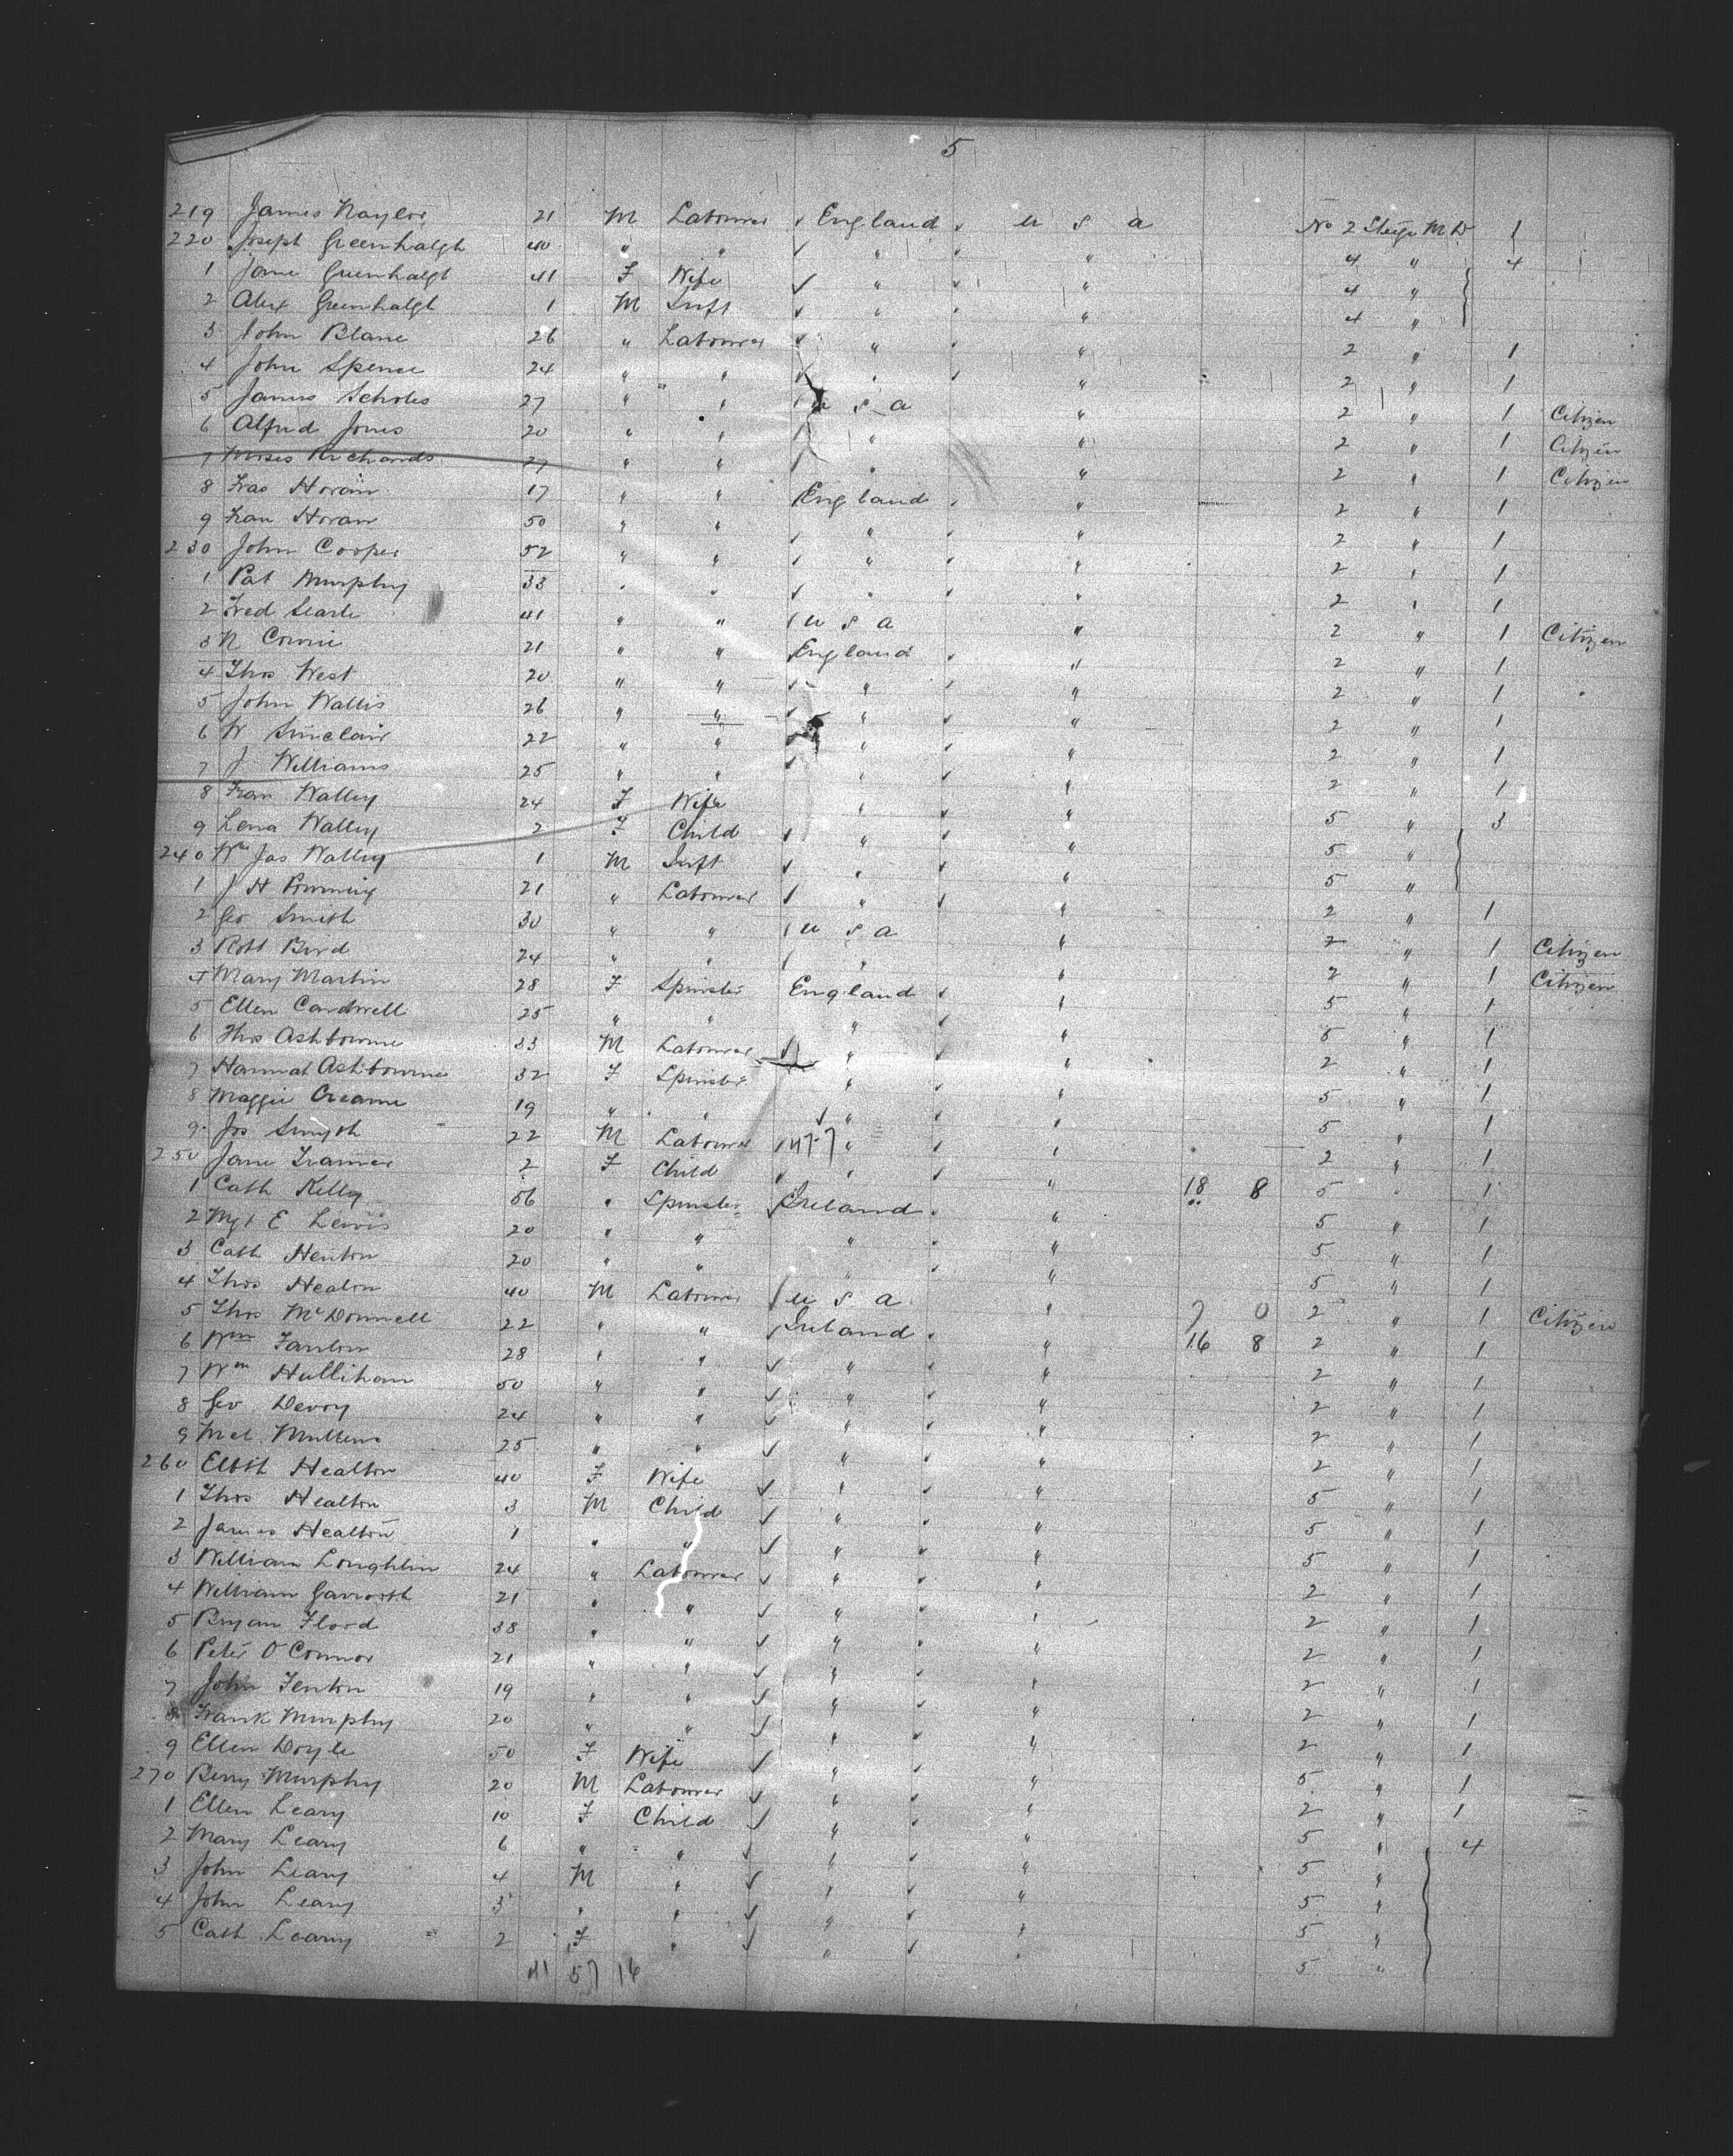 5
219 James Naylor 21 M Labourer England U S A No 2 Steege M D 1
220 Joseph Greenhalgh 40 " " " " 4 " 4
1 Jane Greenhalgh 41 F Wife " " 4 "
2 Alex Greenhalgh 1 M Inft " " 4 "
3 John Blane 26 " Labourer " " 2 " 1
4 John Spence 24 " " " " 2 " 1
5 James Scholes 27 " " U S A " 2 " 1 Citizen
6 Alfred Jones 20 " " " " 2 " 1 Citizen
7 Moses Richards 27 " " " " 2 " 1 Citizen
8 Fras Horan 17 " " England " 2 " 1
9 Fran Horan 50 " " " " 2 " 1
230 John Cooper 52 " " " " 2 " 1
1 Pat Murphy 33 " " " " 2 " 1
2 Fred Searle 41 " " U S A " 2 " 1 Citizen
3 N 21 " " England " 2 " 1
4 Thos West 20 " " " " 2 " 1
5 John Wallis 26 " " " " 2 " 1
6 W Sinclair 22 " " " " 2 " 1
7 J Williams 25 " " " " 2 " 1
8 Fran Walley 24 F Wife " " 5 " 3
9 Lena Walley 2 F Child " " 5 "
240 Wm Jas Walley 1 M Inft " " 5 "
1 J H 21 " Labourer " " 2 " 1
2 Geo Smith 30 " " U S A " 2 " 1 Citizen
3 Robt Bird 24 " " " " 2 " 1 Citizen
4 Mary Martin 28 F Spinster England " 5 " 1
5 Ellen Cardwell 25 " " " " 5 " 1
6 Thos Ashbourne 33 M Labourer " " 2 " 1
7 Hannah Ashbourne 32 F Spinster " " 5 " 1
8 Maggie 19 " " " " 5 " 1
9 Jos Smyth 22 M Labourer " " 2 " 1
250 Jane 2 F Child " " 18 8 5 " 1
1 Cath Kelly 56 " Spinster Ireland " 5 " 1
2 Mgt E Lewis 20 " " " " 5 " 1
3 Cath Henton 20 " " " " 5 " 1
4 Thos Healon 40 M Labourer U S A " 7 0 2 " 1 Citizen
5 Thos McDonnell 22 " " Ireland " 16 8 2 " 1
6 Wm Fanlon 28 " " " " 2 " 1
7 Wm Hullihan 50 " " " " 2 " 1
8 Geo Devoy 24 " " " " 2 " 1
9 Mcl Mullens 25 " " " " 2 " 1
260 Elbth Healton 40 F Wife " " 5 " 1
1 Thos Healton 3 M Child " " 5 " 1
2 James Healton 1 " " " " 5 " 1
3 William Loughlin 24 " Labourer " " 2 " 1
4 William 21 " " " " 2 " 1
5 Bryan Flood 38 " " " " 2 " 1
6 Peter O'Connor 21 " " " " 2 " 1
7 John Fenton 19 " " " " 2 " 1
8 Frank Murphy 20 " " " " 2 " 1
9 Ellen Doyle 50 F Wife " " 5 " 1
270 Murphy 20 M Labourer " " 2 " 1
1 Ellen Leary 10 F Child " " 5 " 4
2 Mary Leary 6 " " " " 5 "
3 John Leary 4 M " " " 5 "
4 John Leary 3 " " " " 5 "
5 Cath Leary 2 F " " " 5 "
41 57 16